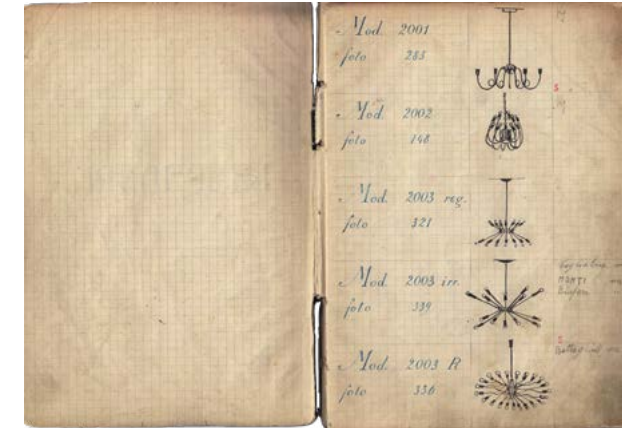 Mod. 2001
foto 283
Mod. 2002
foto 146
Mod. 2003 reg.
foto 321
Mod. 2003 irr.
foto 339
MONTI
Mod. 2003 R
foto 336